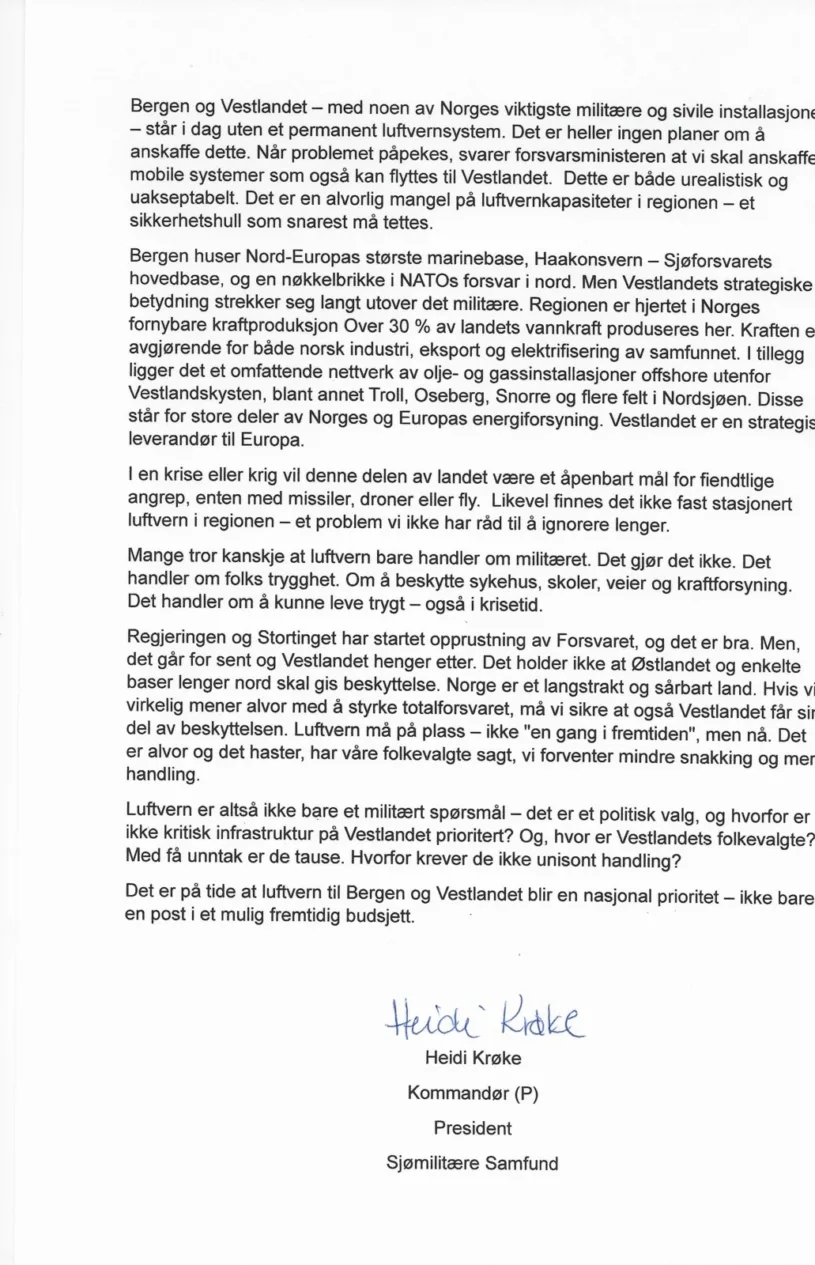 Bergen og Vestlandet – med noen av Norges viktigste militære og sivile installasjone
– står i dag uten et permanent luftvernsystem. Det er heller ingen planer om å
anskaffe dette. Når problemet påpekes, svarer forsvarsministeren at vi skal anskaffe
mobile systemer som også kan flyttes til Vestlandet.  Dette er både urealistisk og
uakseptabelt. Det er en alvorlig mangel på luftvernkapasiteter i regionen – et
sikkerhetshull som snarest må tettes.
Bergen huser Nord-Europas største marinebase, Haakonsvern – Sjøforsvarets
hovedbase, og en nøkkelbrikke i NATOs forsvar i nord. Men Vestlandets strategiske
betydning strekker seg langt utover det militære. Regionen er hjertet i Norges
fornybare kraftproduksjon Over 30 % av landets vannkraft produseres her. Kraften e
avgjørende for både norsk industri, eksport og elektrifisering av samfunnet. I tillegg
ligger det et omfattende nettverk av olje- og gassinstallasjoner offshore utenfor
Vestlandskysten, blant annet Troll, Oseberg, Snorre og flere felt i Nordsjøen. Disse
står for store deler av Norges og Europas energiforsyning. Vestlandet er en strategis
leverandør til Europa.
I en krise eller krig vil denne delen av landet være et åpenbart mål for fiendtlige
angrep, enten med missiler, droner eller fly.  Likevel finnes det ikke fast stasjonert
luftvern i regionen – et problem vi ikke har råd til å ignorere lenger.
Mange tror kanskje at luftvern bare handler om militæret. Det gjør det ikke. Det
handler om folks trygghet. Om å beskytte sykehus, skoler, veier og kraftforsyning.
Det handler om å kunne leve trygt – også i krisetid.
Regjeringen og Stortinget har startet opprustning av Forsvaret, og det er bra. Men,
det går for sent og Vestlandet henger etter. Det holder ikke at Østlandet og enkelte
baser lenger nord skal gis beskyttelse. Norge er et langstrakt og sårbart land. Hvis vi
virkelig mener alvor med å styrke totalforsvaret, må vi sikre at også Vestlandet får sin
del av beskyttelsen. Luftvern må på plass – ikke "en gang i fremtiden", men nå. Det
er alvor og det haster, har våre folkevalgte sagt, vi forventer mindre snakking og mer
handling.
Luftvern er altså ikke bare et militært spørsmål – det er et politisk valg, og hvorfor er
ikke kritisk infrastruktur på Vestlandet prioritert? Og, hvor er Vestlandets folkevalgte?
Med få unntak er de tause. Hvorfor krever de ikke unisont handling?
Det er på tide at luftvern til Bergen og Vestlandet blir en nasjonal prioritet – ikke bare
en post i et mulig fremtidig budsjett.
Heidi Krøke
Heidi Krøke
Kommandør (P)
President
Sjømilitære Samfund